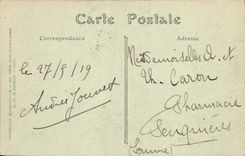 Carte Postale
Correspondance
Adresse
le 27/9/19
André Jouvet
Mesdemoiselles A. et
Th. Caron
Pharmacie
(Somme)